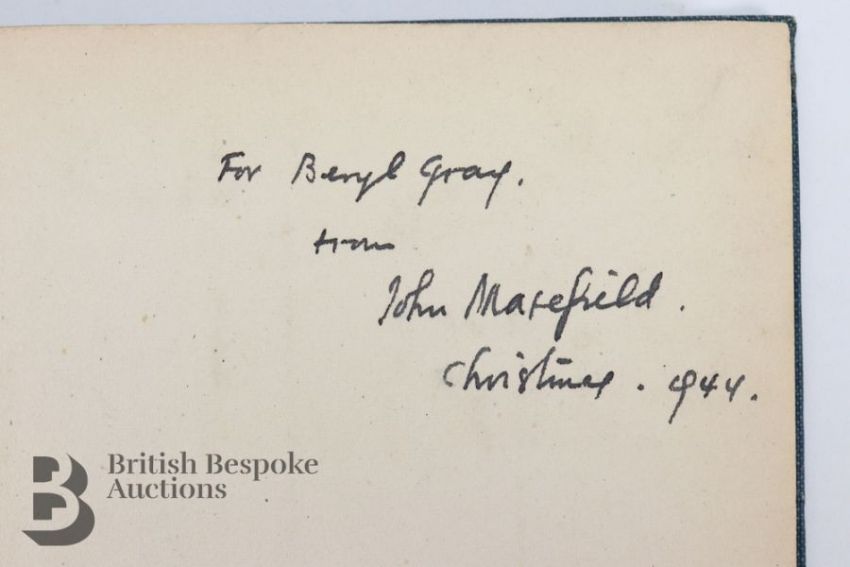 For Beryl Gray.
from
John Masefield.
Christmas. 1944.
British Bespoke
Auctions
B